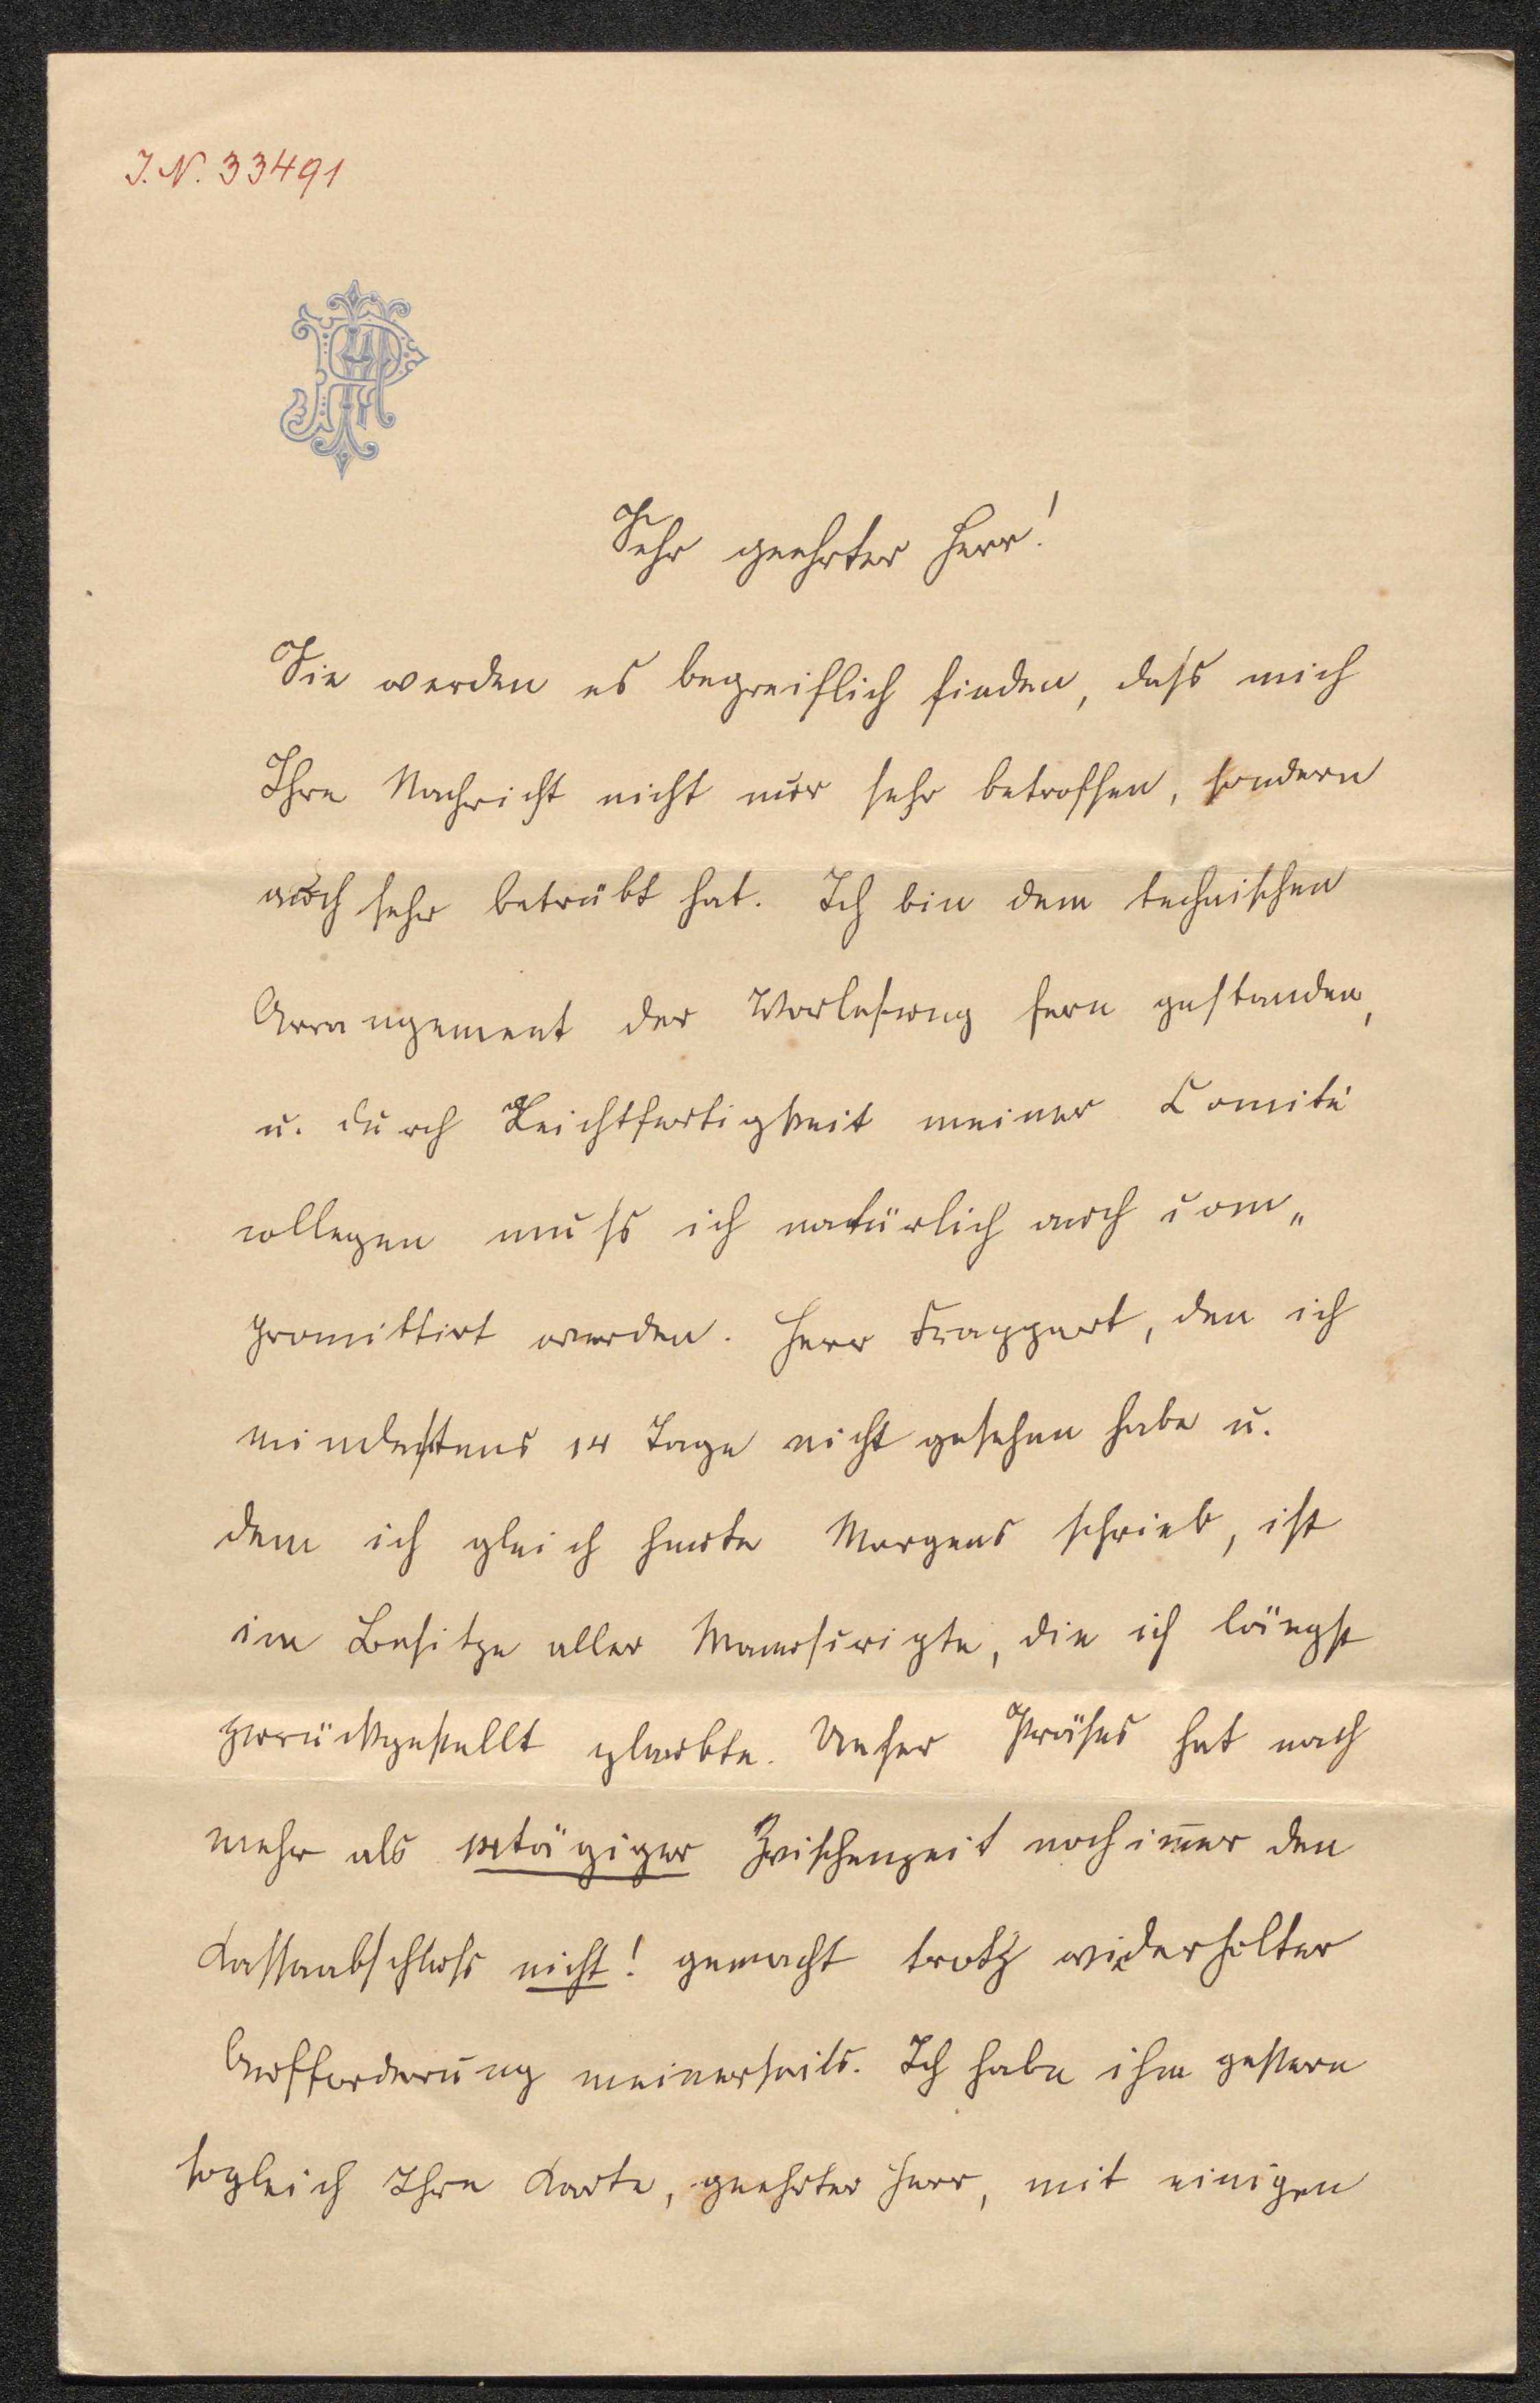 I. N. 33491
Sehr geehrter Herr!
Sie werden es begreiflich finden, daſs mich
Ihre Nachricht nicht nur sehr betroffen, sondern
auch sehr betrübt hat. Ich bin dem technischen
Arrangement der Vorlesung fern gestanden,
u. durch Leichtfertigkeit meiner Comité
collegen muſs ich natürlich auch com„
promittirt werden. Herr Frappart, den ich
mindestens 14 Tage nicht gesehen habe u.
dem ich gleich heute Morgens schrieb, ist
im Besitze aller Manuscripte, die ich längst
zurückgestellt glaubte. Unser Präses hat nach
mehr als 14tägiger Zwischenzeit noch im̅er den
Kassaabschluſs nicht! gemacht trotz wiederholter
Aufforderung meinerseits. Ich habe ihm gestern
sogleich Ihre Karte, geehrter Herr, mit einigen